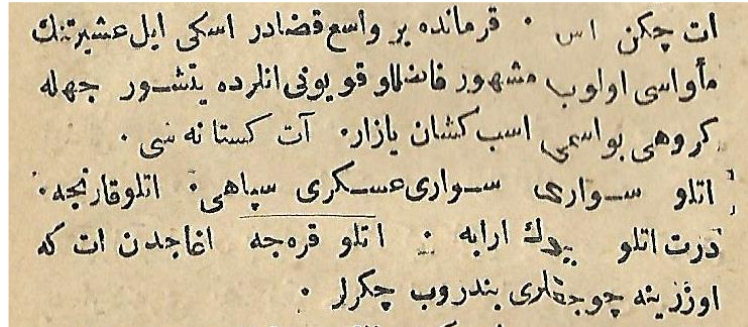 ات چكن اس · قرمانده بر واسع قضادر اسكی ایل عشیرتنك
مأواسی اولوب مشهور قاضللو قویونی انلرده یتشور جهله
كروهی بو اسمی اسب كشان یازار· آت كستانه سی ·
اتلو سواری سواری عسكری سپاهی· اتلو قارنجه·
درت اتلو یدك ارابه · اتلو قره جه اغاجدن ات كه
اوززینه چوجقلری بندروب چكرلر ·